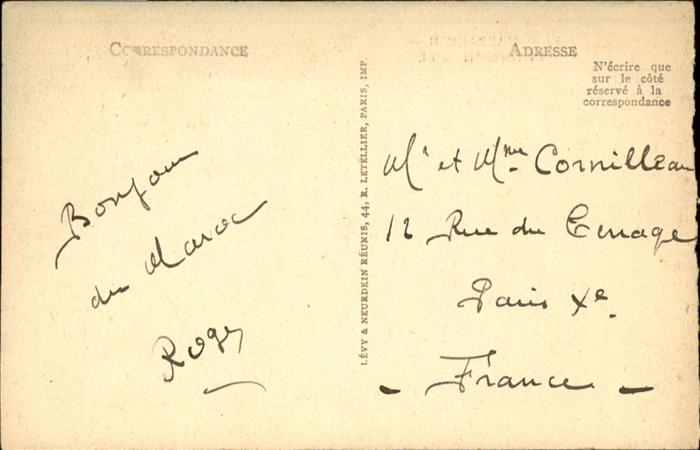 CORRESPONDANCE
Bonjour
du Maroc
Roger
LÉVY & NEURDEIN RÉUNIS, 44, R. LETELLIER, PARIS, IMP.
ADRESSE
N'écrire que
sur le côté
réservé à la
correspondance
Mr et Mme Cornilleau
12 Rue du
Paris Xe.
- France -